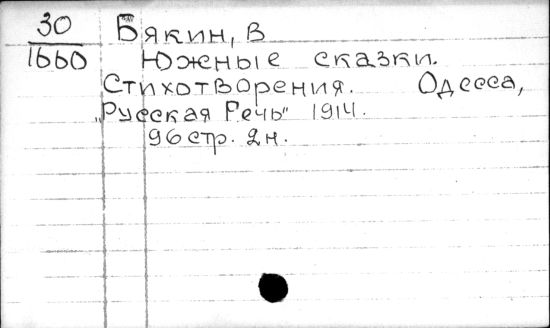 30 Бякин, В
1660 Южные сказки.
Стихотворения. Одесса,
„Русская Речь" 1914.
96 стр. 2 н.